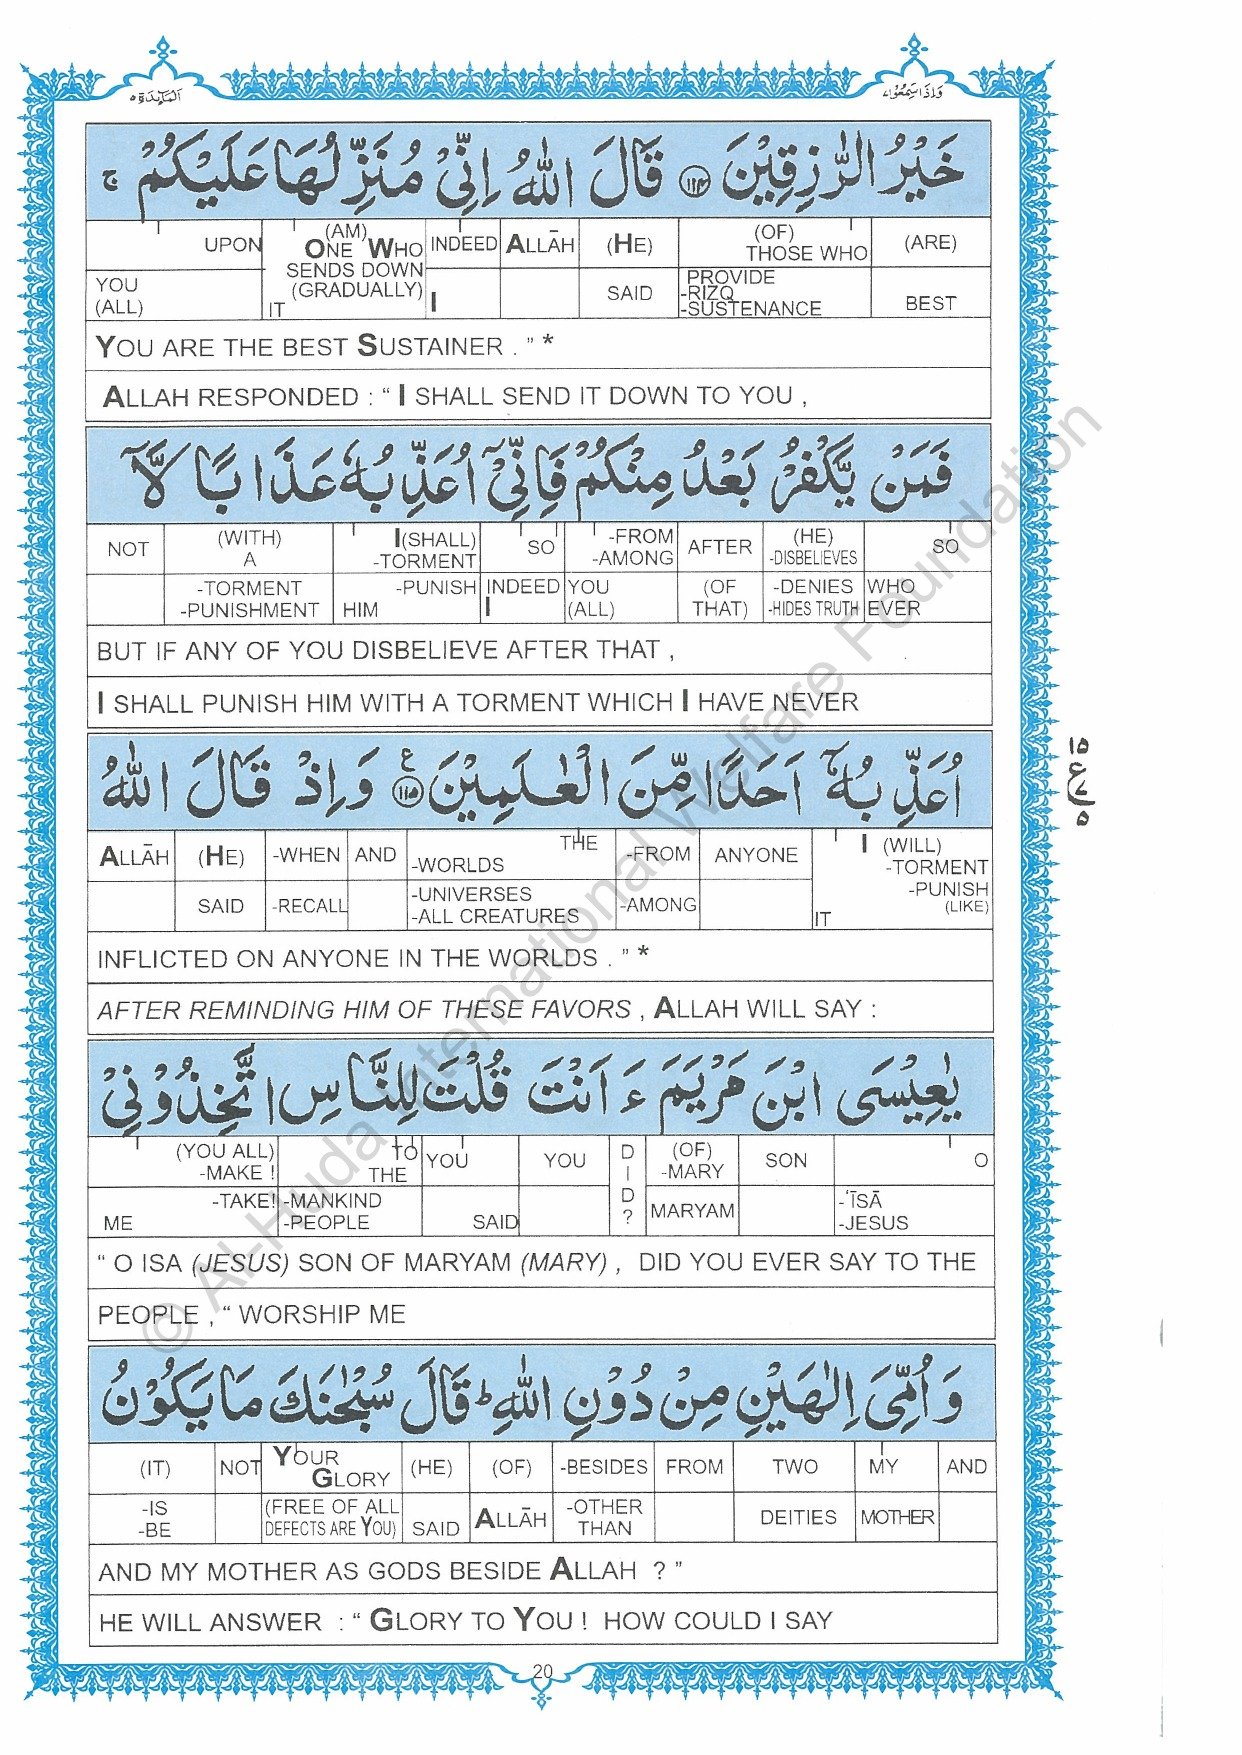 المآئدة ٥
وَاِذَا سَمِعُوْا ٧
خَيْرُ الرّٰزِقِيْنَ ﴿١١٤﴾ قَالَ اللّٰهُ اِنِّيْ مُنَزِّلُهَا عَلَيْكُمْ ۚ
UPON (AM) ONE WHO INDEED ALLĀH (HE) (OF) THOSE WHO (ARE)
YOU (ALL) SENDS DOWN (GRADUALLY) IT I SAID PROVIDE -RIZQ -SUSTENANCE BEST
YOU ARE THE BEST SUSTAINER . ” *
ALLAH RESPONDED : “ I SHALL SEND IT DOWN TO YOU ,
فَمَنْ يَّكْفُرْ بَعْدُ مِنْكُمْ فَاِنِّيْٓ اُعَذِّبُهٗ عَذَابًا لَّآ
NOT (WITH) A I(SHALL) -TORMENT SO -FROM -AMONG AFTER (HE) -DISBELIEVES SO
-TORMENT -PUNISHMENT -PUNISH HIM INDEED I YOU (ALL) (OF THAT) -DENIES -HIDES TRUTH WHO EVER
BUT IF ANY OF YOU DISBELIEVE AFTER THAT ,
I SHALL PUNISH HIM WITH A TORMENT WHICH I HAVE NEVER
اُعَذِّبُهٗٓ اَحَدًا مِّنَ الْعٰلَمِيْنَ ﴿١١٥﴾ ع وَاِذْ قَالَ اللّٰهُ
١٥
ع
٧
٥
ALLĀH (HE) -WHEN AND THE -WORLDS -FROM ANYONE I (WILL) -TORMENT
SAID -RECALL -UNIVERSES -ALL CREATURES -AMONG -PUNISH (LIKE) IT
INFLICTED ON ANYONE IN THE WORLDS . ” *
AFTER REMINDING HIM OF THESE FAVORS , ALLAH WILL SAY :
يٰعِيْسَى ابْنَ مَرْيَمَ ءَاَنْتَ قُلْتَ لِلنَّاسِ اتَّخِذُوْنِيْ
(YOU ALL) -MAKE ! TO THE YOU YOU DID? (OF) -MARY SON O
-TAKE! ME -MANKIND -PEOPLE SAID MARYAM -‘ĪSĀ -JESUS
“ O ISA (JESUS) SON OF MARYAM (MARY) , DID YOU EVER SAY TO THE
PEOPLE , “ WORSHIP ME
وَاُمِّيَ اِلٰهَيْنِ مِنْ دُوْنِ اللّٰهِ ؕ قَالَ سُبْحٰنَكَ مَا يَكُوْنُ
(IT) NOT YOUR GLORY (HE) (OF) -BESIDES FROM TWO MY AND
-IS -BE (FREE OF ALL DEFECTS ARE YOU) SAID ALLĀH -OTHER THAN DEITIES MOTHER
AND MY MOTHER AS GODS BESIDE ALLAH ? ”
HE WILL ANSWER : “ GLORY TO YOU ! HOW COULD I SAY
20
© Al-Huda International Welfare Foundation